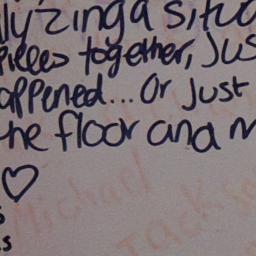 lyzing a situa
pieces together, Jus
appened... Or Just
the floor and m
Michael
Jackso
s
s